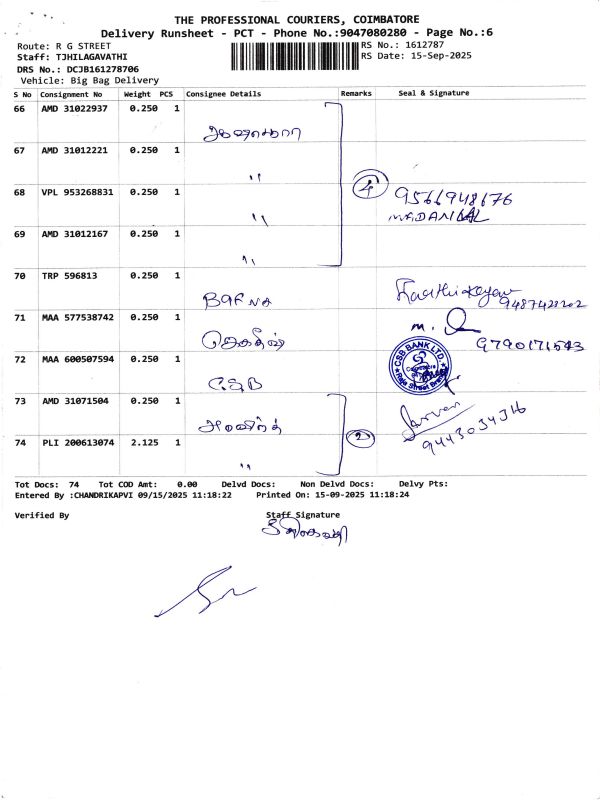 THE PROFESSIONAL COURIERS, COIMBATORE
Delivery Runsheet - PCT - Phone No.:9047080280 - Page No.:6
Route: R G STREET
RS No.: 1612787
Staff: TJHILAGAVATHI
RS Date: 15-Sep-2025
DRS No.: DCJB161278706
Vehicle: Big Bag Delivery
S No Consignment No Weight PCS Consignee Details Remarks Seal & Signature
66 AMD 31022937 0.250 1
67 AMD 31012221 0.250 1 "
68 VPL 953268831 0.250 1 " 4 9566948676
69 AMD 31012167 0.250 1 "
70 TRP 596813 0.250 1 Karthikeyan 9487423202
71 MAA 577538742 0.250 1 9790171543
72 MAA 600507594 0.250 1 CSB CSB BANK LTD.
73 AMD 31071504 0.250 1 2 9443034316
74 PLI 200613074 2.125 1 "
Tot Docs: 74 Tot COD Amt: 0.00 Delvd Docs: Non Delvd Docs: Delvy Pts:
Entered By :CHANDRIKAPVI 09/15/2025 11:18:22 Printed On: 15-09-2025 11:18:24
Verified By Staff Signature